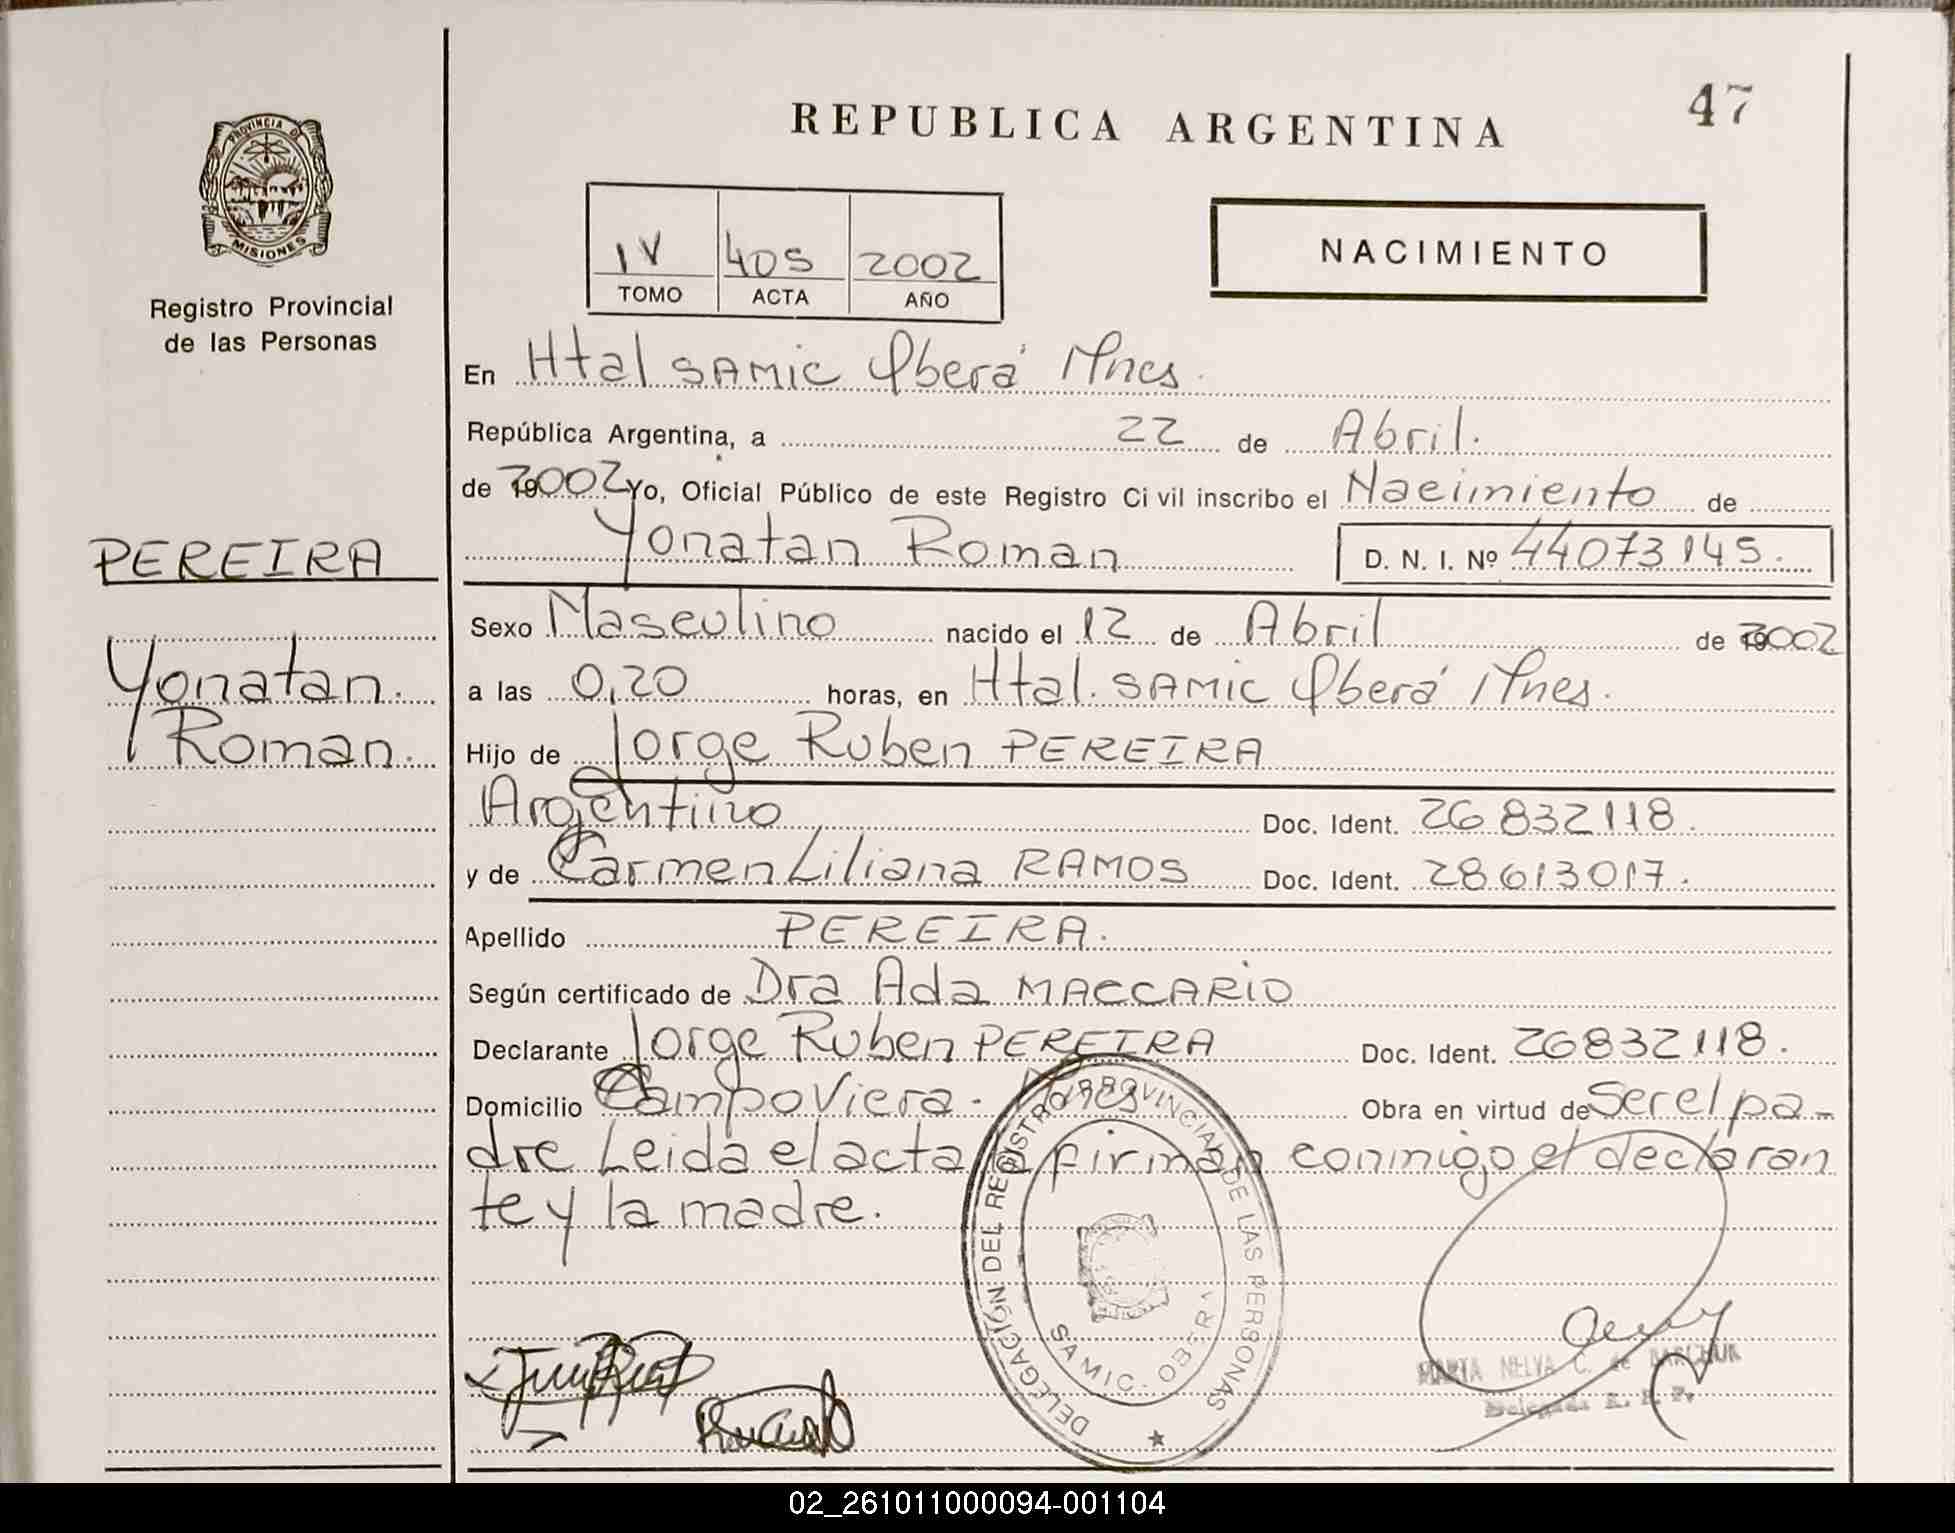 REPUBLICA ARGENTINA
47
PROVINCIA DE
MISIONES
Registro Provincial
de las Personas
IV 405 2002
TOMO ACTA AÑO
NACIMIENTO
En Htal SAMIC Oberá Mnes.
República Argentina, a 22 de Abril.
de 2002 Yo, Oficial Público de este Registro Civil inscribo el Nacimiento de
Yonatan Roman D. N. I. Nº 44073145.
PEREIRA
Yonatan.
Roman.
Sexo Masculino nacido el 12 de Abril de 2002
a las 0,20 horas, en Htal. SAMIC Oberá Mnes.
Hijo de Jorge Ruben PEREIRA
Argentino Doc. Ident. 26832118.
y de Carmen Liliana RAMOS Doc. Ident. 28613017.
Apellido PEREIRA.
Según certificado de Dra Ada MACCARIO
Declarante Jorge Ruben PEREIRA Doc. Ident. 26832118.
Domicilio Campo Viera. Mnes Obra en virtud de Ser el pa-
dre Leida el acta la firman conmigo el declaran
te y la madre.
DELEGACIÓN DEL REGISTRO PROVINCIAL DE LAS PERSONAS
SAMIC - OBERA
MARTA NELVA C. de
Delegada R. P. P.
02_261011000094-001104